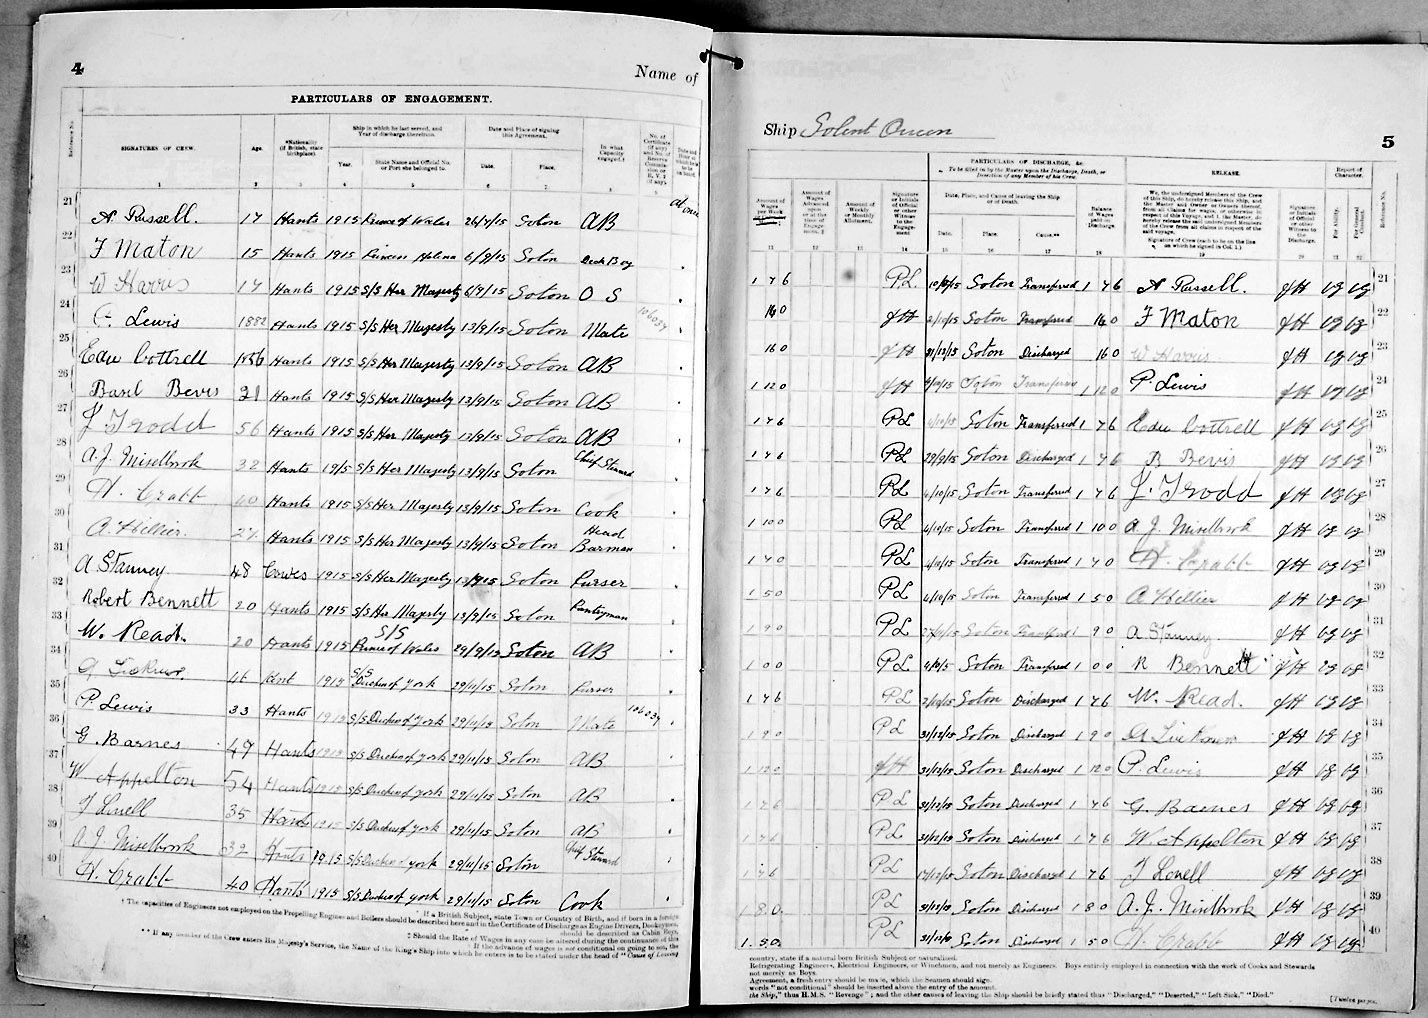 4
Name of
PARTICULARS OF ENGAGEMENT.
Reference No. SIGNATURES OF CREW. Age. *Nationality (if British, state birthplace). Ship in which he last served, and Year of discharge therefrom. Date and Place of signing this Agreement. In what Capacity engaged.†
Year. State Name and Official No. or Port she belonged to. Date. Place.
1 3 4 5 6 7 8
21 A Russell. 17 Hants 1915 Prince of Wales 26/7/15 Soton AB
22 F Maton 15 Hants 1915 Princess Helena 6/9/15 Soton Deck Boy
23 W Harris 17 Hants 1915 S/S Her Majesty 6/9/15 Soton O S
24 P. Lewis 1882 Hants 1915 S/S Her Majesty 13/9/15 Soton Mate 106039
25 Edw Cottrell 1886 Hants 1915 S/S Her Majesty 13/9/15 Soton AB
26 Basil Bevis 21 Hants 1915 S/S Her Majesty 13/9/15 Soton AB
27 J Trodd 56 Hants 1915 S/S Her Majesty 13/9/15 Soton AB
28 A.J. Miselbrook 32 Hants 1915 S/S Her Majesty 13/9/15 Soton Chief Steward
29 H. Crabb 40 Hants 1915 S/S Her Majesty 13/9/15 Soton Cook
30 A. Hillier. 27 Hants 1915 S/S Her Majesty 13/9/15 Soton Head Barman
31 A Stanney 48 Cowes 1915 S/S Her Majesty 13/9/15 Soton Purser
32 Robert Bennett 20 Hants 1915 S/S Her Majesty 13/9/15 Soton Pantryman
33 W. Read. 20 Hants 1915 S/S Prince of Wales 29/9/15 Soton AB
34 46 Kent 1915 S/S Duchess of York 29/11/15 Soton Purser
35 P. Lewis 33 Hants 1915 S/S Duchess of York 29/11/15 Soton Mate 106039
36 G. Barnes 49 Hants 1915 S/S Duchess of York 29/11/15 Soton AB
37 W Appelton 54 Hants 1915 S/S Duchess of York 29/11/15 Soton AB
38 J Lovell 35 Hants 1915 S/S Duchess of York 29/11/15 Soton AB
39 A.J. Miselbrook 32 Hants 1915 S/S Duchess of York 29/11/15 Soton Chief Steward
40 H. Crabb 40 Hants 1915 S/S Duchess of York 29/11/15 Soton Cook
† The capacities of Engineers not employed on the Propelling Engines and Boilers should be described here and in the Certificate of Discharge as Engine Drivers, Donkeymen,
* If a British Subject, state Town or Country of Birth, and if born in a foreign
should be described as Cabin Boys,
‡ Should the Rate of Wages in any case be altered during the continuance of this
If the advance of wages is not conditional on going to sea, the
** If any member of the Crew enters His Majesty's Service, the Name of the King's Ship into which he enters is to be stated under the head of "Cause of Leaving
Ship Solent Queen
5
PARTICULARS OF DISCHARGE, &c.
To be filled in by the Master upon the Discharge, Death, or Desertion of any Member of his Crew.
RELEASE.
Report of Character.
Amount of Wages per Week
Signature or Initials of Official or other Witness to the Engagement
Date, Place, and Cause of leaving the Ship or of Death.
Date. Place. Cause.**
Balance of Wages paid on Discharge.
We, the undersigned Members of the Crew of this Ship, do hereby release this Ship, and the Master and Owner or Owners thereof, from all claims for wages, or otherwise in respect of this Voyage, and I, the Master, do hereby release the undersigned Members of the Crew from all claims in respect of the said voyage.
Signature of Crew (each to be on the line on which he signed in Col. 1.)
Signature or Initials of Official or other Witness to the Discharge.
For Ability. For General Conduct. Reference No.
11 12 13 14 15 16 17 18 19 20 21 22
1 7 6 PL Soton Transferred 1 7 6 A Russell. JH VG VG 21
16 0 JH 2/10/15 Soton Transferred 16 0 F Maton JH VG VG 22
16 0 JH 31/12/15 Soton Discharged 16 0 W Harris JH VG VG 23
1 12 0 JH 4/10/15 Soton Transferred 1 12 0 P. Lewis JH VG VG 24
1 7 6 PL 4/10/15 Soton Transferred 1 7 6 Edw Cottrell JH VG VG 25
1 7 6 PL 29/9/15 Soton Discharged 1 7 6 B Bevis JH VG VG 26
1 7 6 PL 4/10/15 Soton Transferred 1 7 6 J. Trodd JH VG VG 27
1 10 0 PL 4/10/15 Soton Transferred 1 10 0 A J Miselbrook JH VG VG 28
1 4 0 PL 4/10/15 Soton Transferred 1 4 0 H. Crabb JH VG VG 29
1 5 0 PL 4/10/15 Soton Transferred 1 5 0 A Hillier JH VG VG 30
1 9 0 PL Soton Transferred 1 9 0 A Stanney. JH VG VG 31
1 0 0 PL Soton Transferred 1 0 0 R Bennett JH VG VG 32
1 7 6 PL 2/10/15 Soton Discharged 1 7 6 W. Read. JH VG VG 33
1 9 0 PL 31/12/15 Soton Discharged 1 9 0 JH VG VG 34
1 12 0 JH 31/12/15 Soton Discharged 1 12 0 P. Lewis JH VG VG 35
1 7 6 PL 31/12/15 Soton Discharged 1 7 6 G. Barnes JH VG VG 36
1 7 6 PL 31/12/15 Soton Discharged 1 7 6 W. Appelton JH VG VG 37
1 7 6 PL 17/12/15 Soton Discharged 1 7 6 J Lovell JH VG VG 38
1. 8. 0. PL 31/12/15 Soton Discharged 1 8 0 A.J. Miselbrook JH VG VG 39
1. 5. 0. PL 31/12/15 Soton Discharged 1 5 0 H. Crabb JH VG VG 40
country, state if a natural born British Subject or naturalised.
Refrigerating Engineers, Electrical Engineers, or Winchmen, and not merely as Engineers. Boys entirely employed in connection with the work of Cooks and Stewards
not merely as Boys.
Agreement, a fresh entry should be made, which the Seamen should sign.
words "not conditional" should be inserted above the entry of the amount.
the Ship," thus H.M.S. "Revenge"; and the other causes of leaving the Ship should be briefly stated thus "Discharged," "Deserted," "Left Sick," "Died."
[Twelve pages.